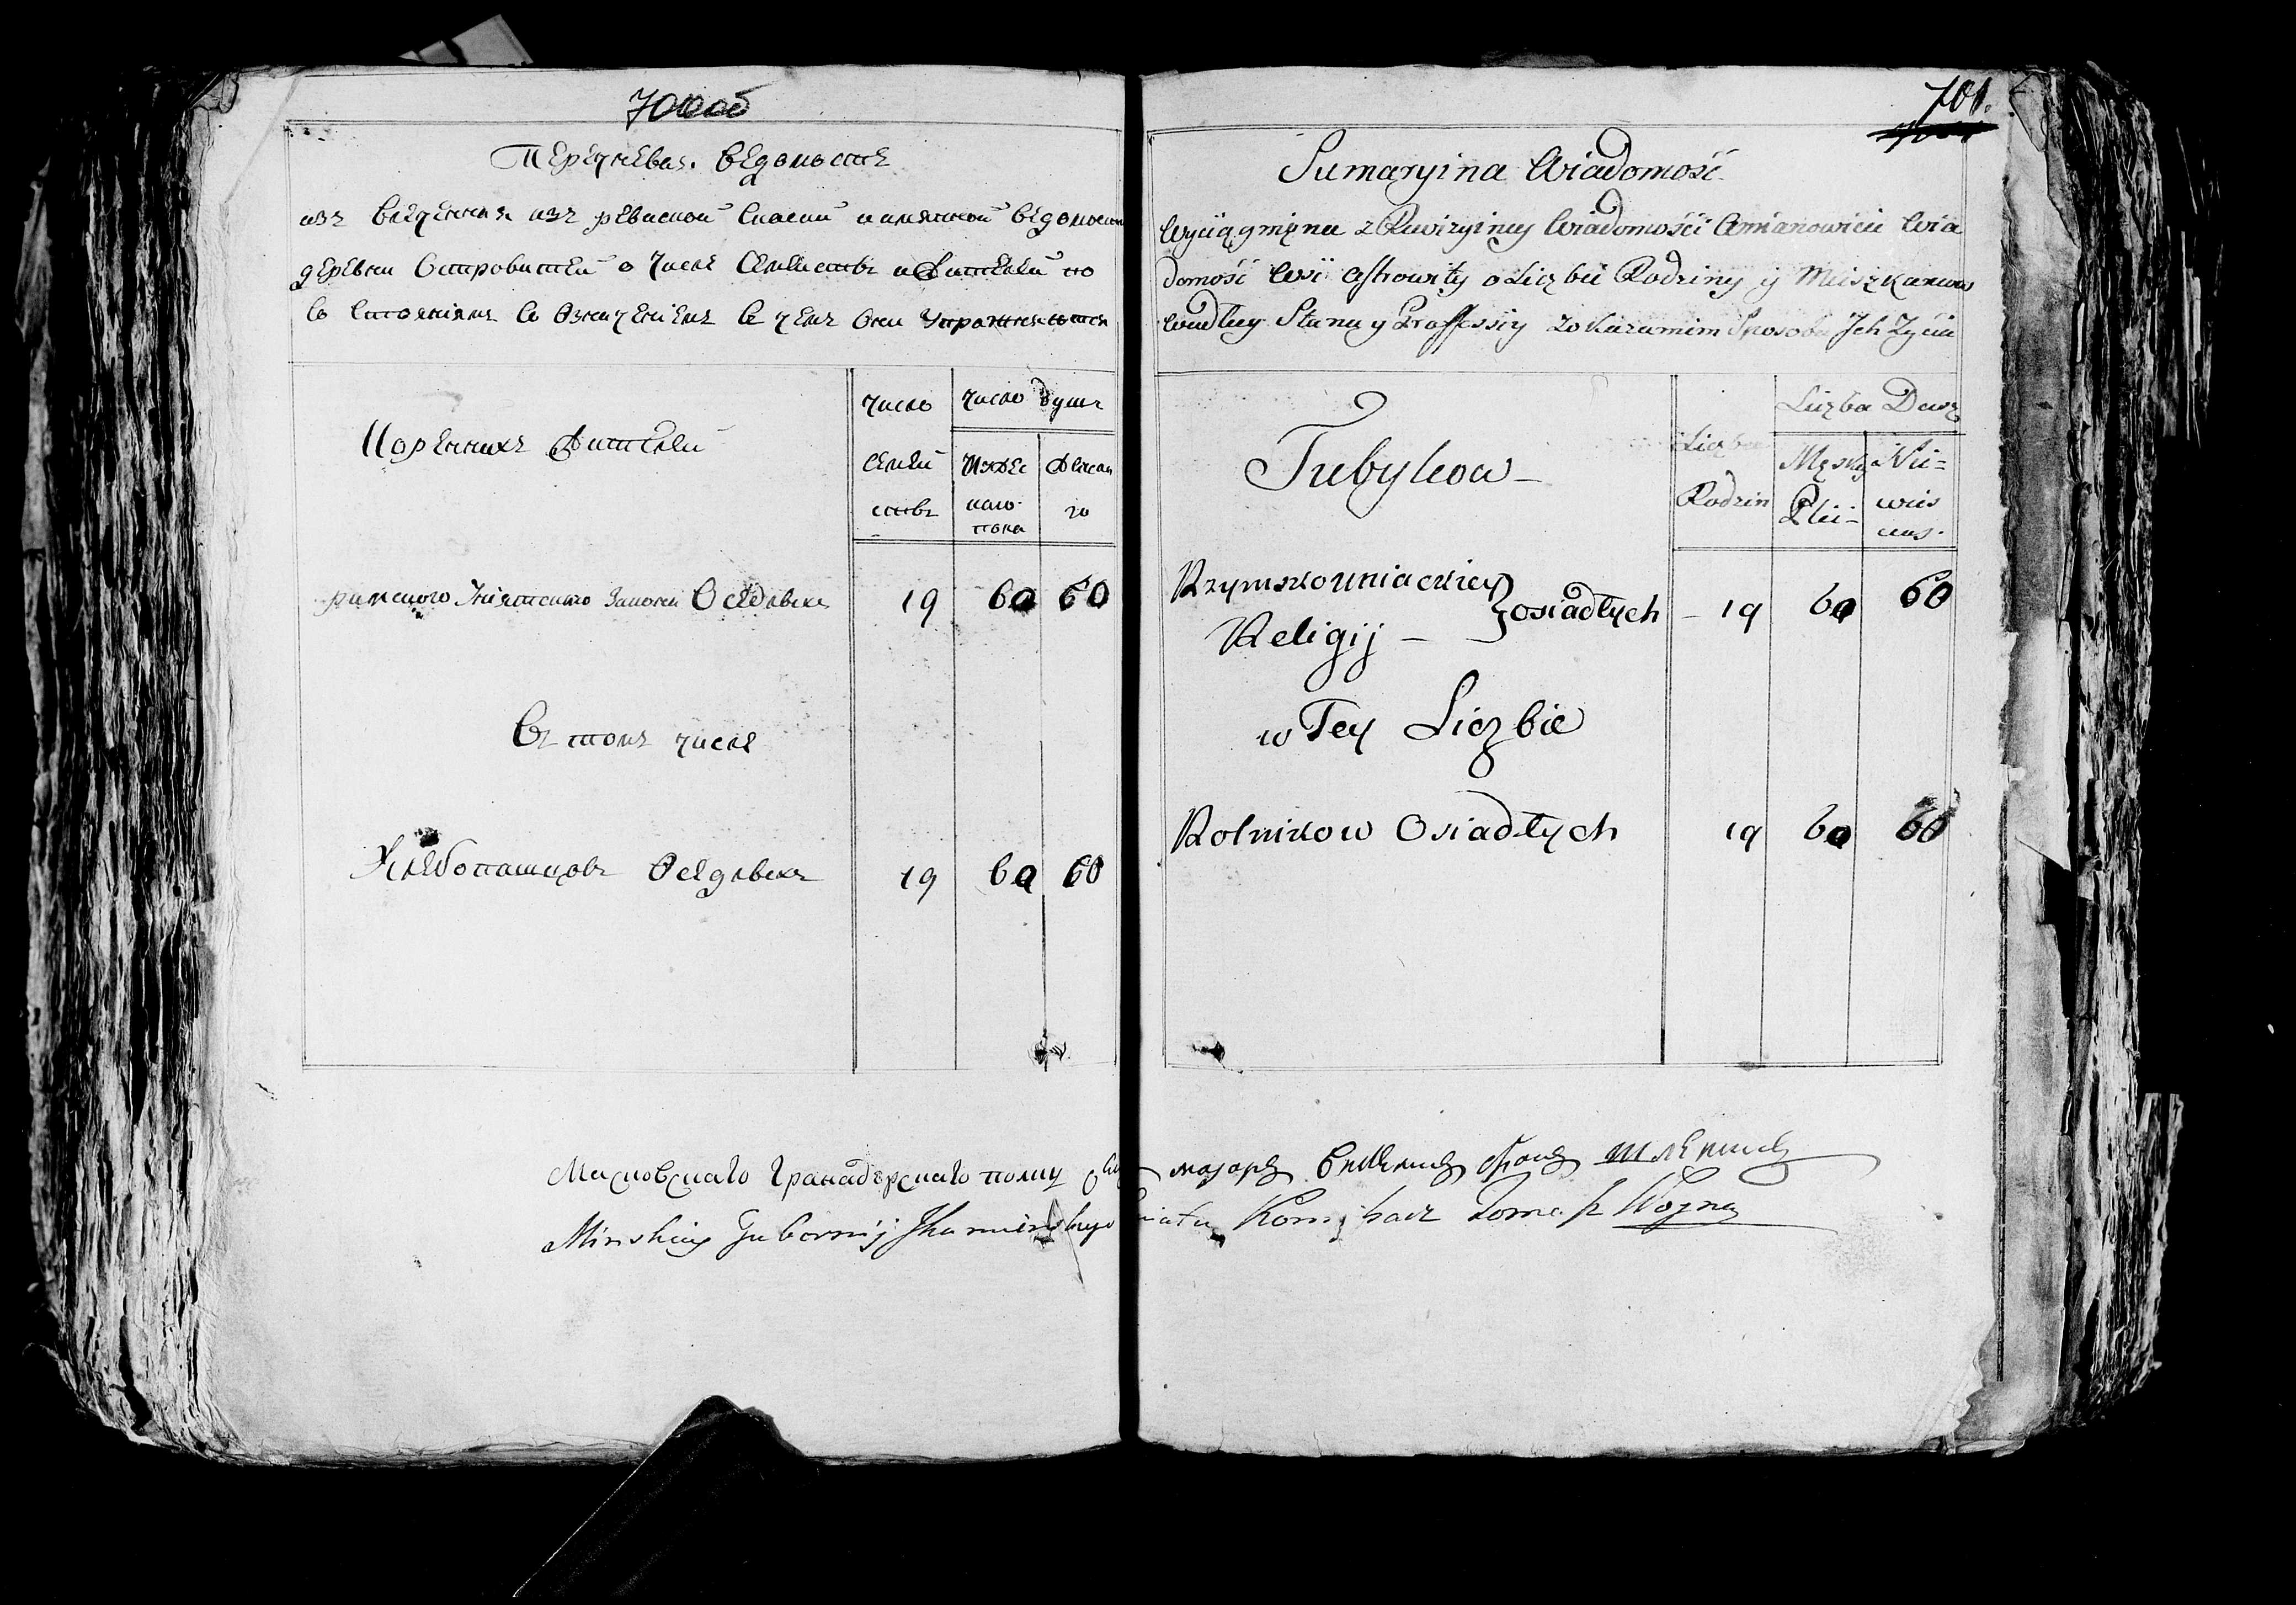 700об
Перечневая. ведомость
изъ влеченная изъ ревиской скаски и имянной ведомости
деревни Островитей о числе семействъ и жителей по
со стояніямъ со означеніемъ в чемъ они упражняются
Коренныхъ жителей
число
семей
ствъ
число душъ
мужес
каго
пола
женска
го
римского уніятского закона оседлыхъ 19 60 60
въ томъ числе
хлебопашцовъ оседлыхъ 19 60 60
701.
Sumaryina Wiadomość
Wyciągnięna z Rewizyiney Wiadomości Wia
domość Wsi Ostrowity o Liczbie Rodziny y Mieszkancow
wedłóg Stanu y Proffessiy Sposobu Jch Zycia
Tubylcow
Liczba
Rodzin
Liczba Dusz
Męskiey
Płci-
Nie=
wies
cies.
Rzymskouniackiey
Religij — } osiadłych – 19 60 60
w Tey Liczbie
Rolnikow Osiadłych 19 60 60
Московскаго Гранадерскаго полку маіоръ фонъ
Minskiey Gubernij Jhumenskiego Powiatu Komisarz Tomasz Woyna